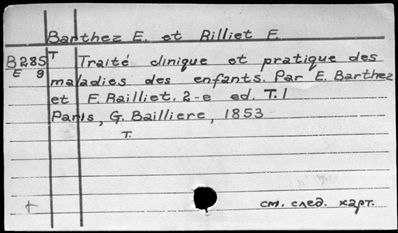 Barthez E. et Rilliet F.
B285 T Traité clinique et pratique des
E 9 maladies des enfants. Par E. Barthez
et F. Railliet. 2-e ed. T. 1
Paris, G. Bailliere, 1853
T.
+ см. след. карт.